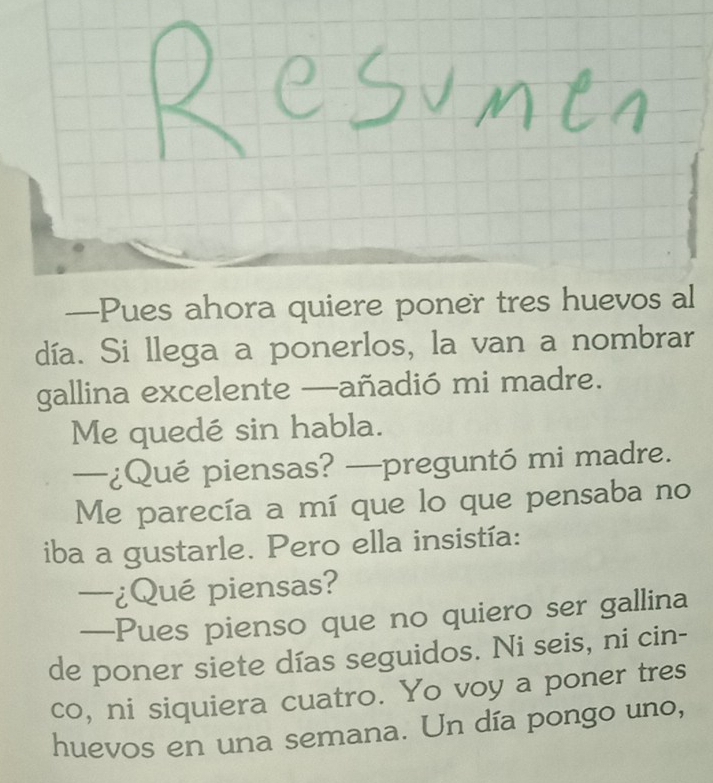 Resumen
—Pues ahora quiere poner tres huevos al
día. Si llega a ponerlos, la van a nombrar
gallina excelente —añadió mi madre.
Me quedé sin habla.
—¿Qué piensas? —preguntó mi madre.
Me parecía a mí que lo que pensaba no
iba a gustarle. Pero ella insistía:
—¿Qué piensas?
—Pues pienso que no quiero ser gallina
de poner siete días seguidos. Ni seis, ni cin-
co, ni siquiera cuatro. Yo voy a poner tres
huevos en una semana. Un día pongo uno,